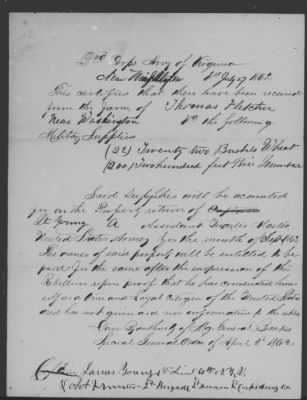 2nd Corps Army of Virginia
Near July 27 1862
This certifies that there have been received
from the farm of Thomas Fletcher
Near Washington Va the following
Military Supplies
(22) Twenty two Bushels Wheat
(200) Two hundred feet Lumber
Said Supplies will be accounted
for on the Property return of
Lt Young A Assistant Quarter Master
United States Army for the month of Sept 1862
The owner of said property will be entitled to be
paid for the same after the suppression of the
Rebellion upon proof that he has conducted himself
as a true and Loyal citizen of the United States
and has not given aid nor information to the
By authority of Maj General Banks
Special General Order of April 1862
James Young
Brigade Division Corps Army Va